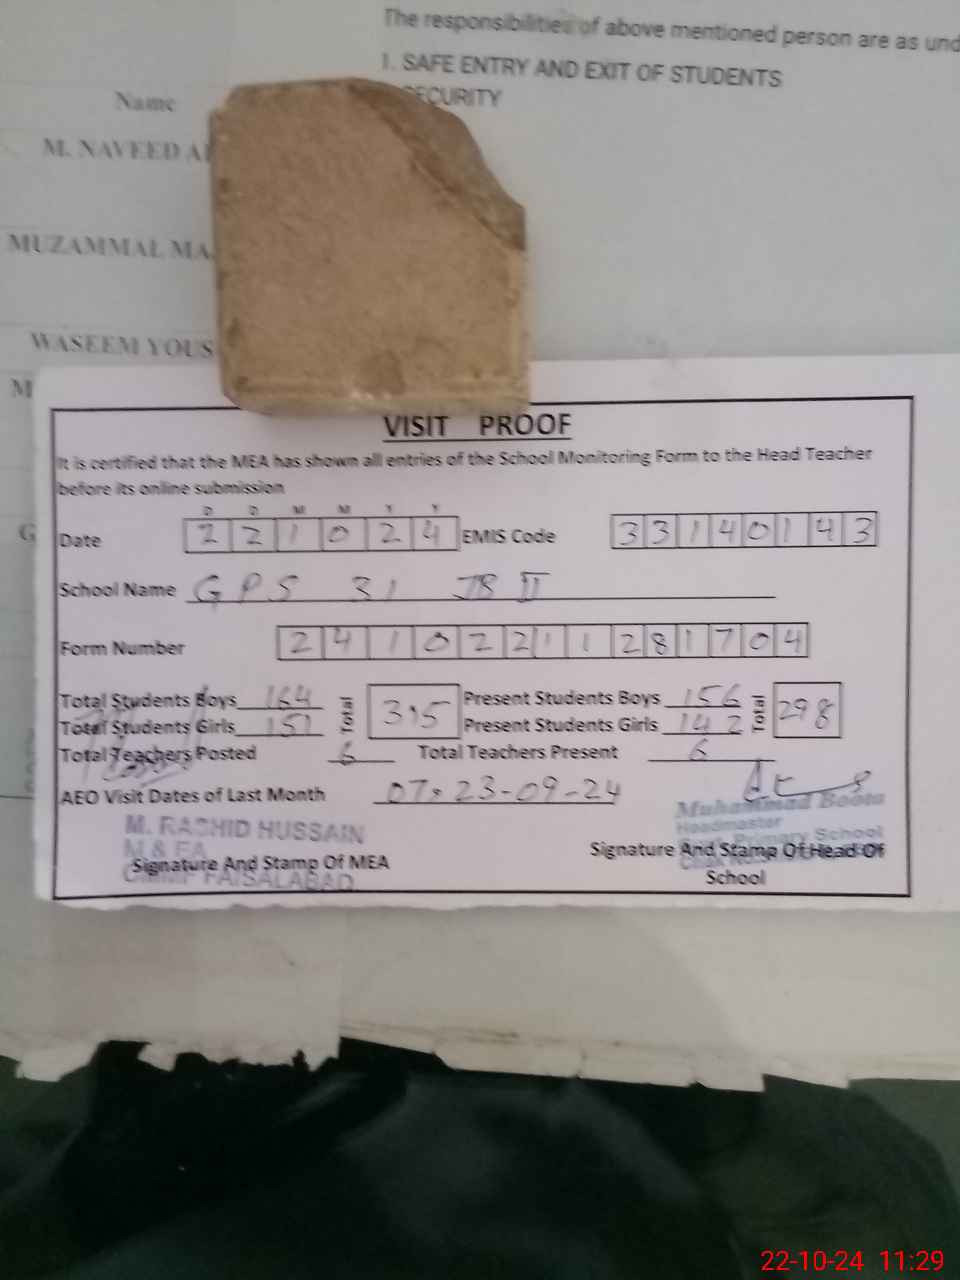 The responsibilities of above mentioned person are as und
1. SAFE ENTRY AND EXIT OF STUDENTS
SECURITY
Name
M. NAVEED A
MUZAMMAL MA
WASEEM YOUS
M
G
VISIT PROOF
It is certified that the MEA has shown all entries of the School Monitoring Form to the Head Teacher
before its online submission
D D M M Y Y
Date 2 2 1 0 2 4 EMIS Code 3 3 1 4 0 1 4 3
School Name GPS 31 JB II
Form Number 2 4 1 0 2 2 1 1 2 8 1 7 0 4
Total Students Boys 164 Total 315 Present Students Boys 156 Total 298
Total Students Girls 151 Present Students Girls 142
Total Teachers Posted 6 Total Teachers Present 6
AEO Visit Dates of Last Month 07, 23-09-24
Muhammad Boota
Headmaster
Primary School
M. RASHID HUSSAIN
M & EA
FAISALABAD
Signature And Stamp Of MEA
Signature And Stamp Of Head Of
School
22-10-24 11:29